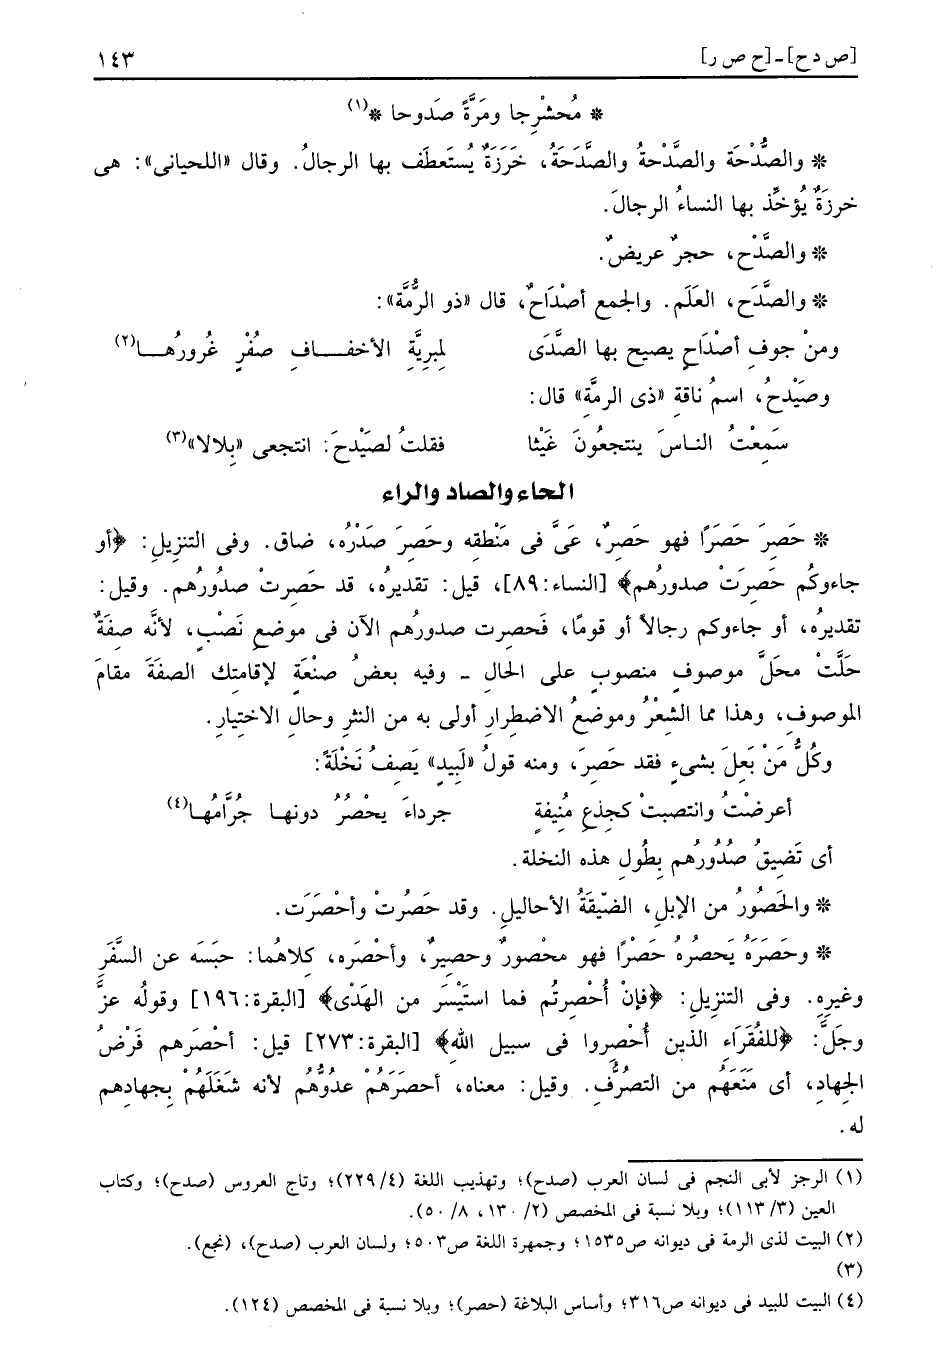 [ص د ح] ـ [ح ص ر] ١٤٣
* مُحشْرِجا ومَرَّةً صَدوحا *(١)
* والصُّدْحَة والصَّدْحةُ والصَّدَحَةُ، خَرَزَةٌ يُستَعطَف بها الرجالُ. وقال «اللحيانى»: هى
خرزَةٌ يُؤخِّذ بها النساءُ الرجالَ.
* والصَّدْح، حجرٌ عريضٌ.
* والصَّدَح، العَلَم. والجمع أصْدَاحٌ، قال «ذو الرمُّة»:
ومنْ جوفِ أصْدَاحٍ يصيح بها الصدَّى لمِبريَّةِ الأخفـــافِ صفُرٍ غُرورُهـــا(٢)
وصَيْدحُ، اسمُ ناقةِ «ذى الرمَّة» قال:
سَمِعْتُ النـاسَ ينتجعُونَ غَيْثا فقلتُ لصَيْدحَ: انتجعى «بِلالا»(٣)
الحاء والصاد والراء
* حَصِرَ حَصَرًا فهو حَصِرٌ، عَىَّ فى مَنْطقِه وحَصِرَ صدَرْهُ، ضاق. وفى التنزيلِ: ﴿أو
جاءوكُم حَصِرَتْ صدورُهم﴾ [النساء:٨٩]، قيل: تقديرُه، قد حَصِرتْ صدُورُهم. وقيل:
تقديرُه، أو جاءوكم رجالاً أو قومًا، فَحصِرت صدورُهم الآن فى موضعِ نَصْبٍ، لأنَّه صفَةٌ
حَلَّتْ محلَّ موصوفٍ منصوبٍ على الحالِ ـ وفيه بعضُ صنْعَةٍ لإقامتِك الصفَةَ مقامَ
الموصوف، وهذا مما الشعْرُ وموضعُ الاضطرارِ أولى به من النثرِ وحالِ الاختيارِ.
وكُلُّ مَنْ بَعِلَ بشىءٍ فقد حَصِرَ، ومنه قولُ «لَبِيدٍ» يَصِفُ نَخْلَةً:
أعرضْتُ وانتصبتْ كجذعِ مُنِيفةٍ جرداءَ يحْصَرُ دونهـا جُرَّامُهـا(٤)
أى تَضِيقُ صُدُورُهم بِطُولِ هذه النخلة.
* والحَصُورُ من الإبلِ، الضيِّقَةُ الأحاليلِ. وقد حَصُرتْ وأحْصَرَت.
* وحَصَرَهُ يَحصُرُه حَصْرًا فهو محْصورٌ وحصيرٌ، وأحْصَره، كلاهُما: حبَسَه عن السَّفَرِ
وغيرِه. وفى التنزيلِ: ﴿فإنْ أُحْصِرتُم فما استَيْسَر من الهَدْى﴾ [البقرة:١٩٦] وقولُه عزَّ
وجلَّ: ﴿للفُقَرَاءِ الذين أُحْصِروا فى سبيل اللهِ﴾ [البقرة:٢٧٣] قيل: أحْصَرَهم فَرْضُ
الجِهادِ، أى مَنَعَهُم من التصرُّفِ. وقيل: معناه، أحصَرَهُمْ عدُوُّهُم لأنه شغَلَهُمْ بِجهادِهم
له.
(١) الرجز لأبى النجم فى لسان العرب (صدح)؛ وتهذيب اللغة (٤/ ٢٢٩)؛ وتاج العروس (صدح)؛ وكتاب
العين (٣/ ١١٣)؛ وبلا نسبة فى المخصص (٢/ ١٣٠، ٨/ ٥٠).
(٢) البيت لذى الرمة فى ديوانه ص١٥٣٥؛ وجمهرة اللغة ص٥٠٣؛ ولسان العرب (صدح)، (نجع).
(٣)
(٤) البيت للبيد فى ديوانه ص٣١٦؛ وأساس البلاغة (حصر)؛ وبلا نسبة فى المخصص (١٢٤).